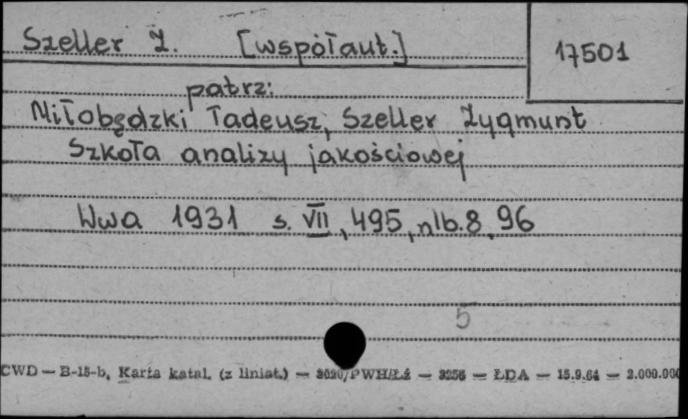 Szeller Z. [współaut.]
17501
patrz:
Miłobędzki Tadeusz, Szeller Zygmunt
Szkoła analizy jakościowej
Wwa 1931 s. VII, 495, nlb. 8, 96
5
CWD — B-15-b, Karta katal. (z liniat.) — 3020/PWH/Łź — 3256 — ŁDA — 15.9.64 — 2.000.000